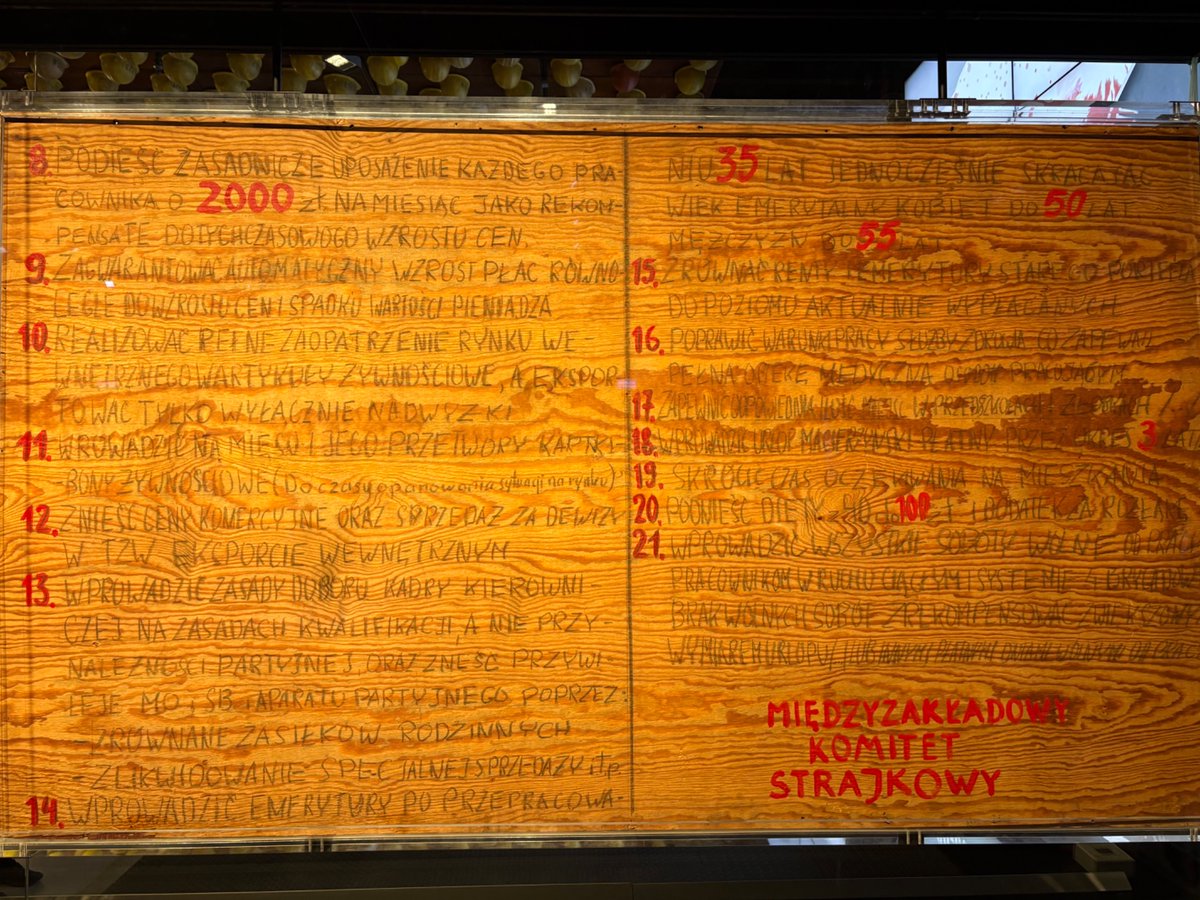 8. PODIEŚĆ ZASADNICZE UPOSAŻENIE KAŻDEGO PRA
COWNIKA O 2000 ZŁ. NA MIESIĄC JAKO REKOM-
PENSATĘ DOTYCHCZASOWEGO WZROSTU CEN.
9. ZAGWARANTOWAĆ AUTOMATYCZNY WZROST PŁAC RÓWNO
LEGLE DO WZROSTU CEN I SPADKU WARTOŚCI PIENIĄDZA
10. REALIZOWAĆ PEŁNE ZAOPATRZENIE RYNKU WE-
WNĘTRZNEGO W ARTYKUŁY ŻYWNOŚCIOWE, A EKSPOR
TOWAĆ TYLKO WYŁĄCZNIE NADWYŻKI
11. WROWADZIĆ NA MIĘSO I JEGO PRZETWORY KARTKI
-BONY ŻYWNOŚCIOWE (Do czasu opanowania sytuacji na rynku)
12. ZNIEŚĆ CENY KOMERCYJNE ORAZ SPRZEDAŻ ZA DEWIZY
W TZW. EKSPORCIE WEWNĘTRZNYM
13. WPROWADZIĆ ZASADY DOBORU KADRY KIEROWNI-
CZEJ NA ZASADACH KWALIFIKACJI, A NIE PRZY-
NALEŻNOŚCI PARTYJNEJ, ORAZ ZNEŚĆ PRZYWI-
LEJE MO, SB, i APARATU PARTYJNEGO POPRZEZ:
- ZRÓWNANE ZASIŁKÓW RODZINNYCH
- ZLIKWIDOWANIE SPECJALNEJ SPRZEDAŻY i.t.p.
14. WPROWADZIĆ EMERYTURY PO PRZEPRACOWA-
NIU 35 LAT JEDNOCZEŚNIE SKRACAJĄC
WIEK EMERYTALNY KOBIET DO 50 LAT
MĘŻCZYZN DO 55 LAT
15. ZRÓWNAĆ RENTY I EMERYTURY STAREGO PORTFELA
DO POZIOMU AKTUALNIE WYPŁACANYCH
16. POPRAWIĆ WARUNKI PRACY SŁUŻBY ZDROWIA CO ZAPEWNI
PEŁNĄ OPIEKĘ MEDYCZNĄ OSOBOM PRACUJĄCYM
17. ZAPEWNIĆ ODPOWIEDNIĄ ILOŚĆ MIEJSC W PRZEDSZKOLACH I ŻŁOBKACH
18. WPROWADZIĆ URLOP MACIERZYŃSKI PŁATNY PRZEZ OKRES 3 LAT
19. SKRÓCIĆ CZAS OCZEKIWANIA NA MIESZKANIA
20. PODNIEŚĆ DIETY 100 ZŁ I DODATEK ZA ROZŁĄKĘ
21. WPROWADZIĆ WSZYSTKIE SOBOTY WOLNE OD PRACY
PRACOWNIKOM W RUCHU CIĄGŁYM I SYSTEMIE 4 BRYGADOWYM
BRAK WOLNYCH SOBÓT ZREKOMPENSOWAĆ ZWIĘKSZONYM
WYMIAREM URLOPU LUB INNYMI PŁATNYMI DNIAMI WOLNYMI OD PRACY
MIĘDZYZAKŁADOWY
KOMITET
STRAJKOWY